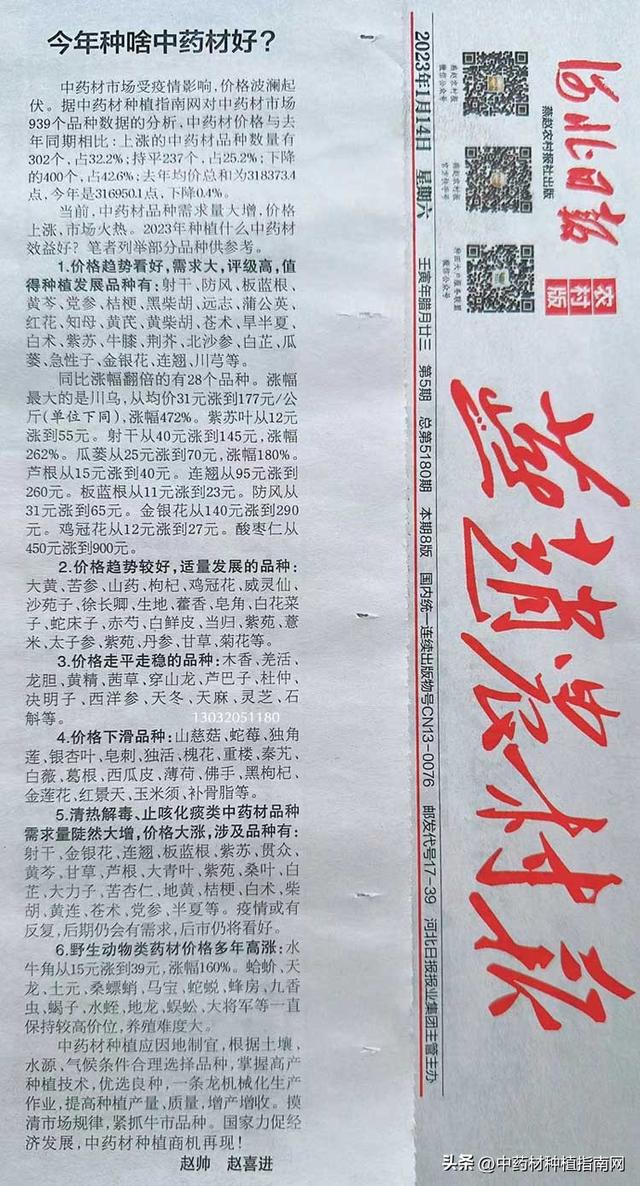 今年种啥中药材好？
中药材市场受疫情影响,价格波澜起
伏。据中药材种植指南网对中药材市场
939个品种数据的分析,中药材价格与去
年同期相比:上涨的中药材品种数量有
302个,占32.2%;持平237个,占25.2%;下降
的400个,占42.6%;去年均价总和为318373.4
点,今年是316950.1点,下降0.4%。
当前,中药材品种需求量大增,价格
上涨,市场火热。2023年种植什么中药材
效益好？笔者列举部分品种供参考。
1.价格趋势看好,需求大,评级高,值
得种植发展品种有:射干、防风、板蓝根、
黄芩、党参、桔梗、黑柴胡、远志、蒲公英、
红花、知母、黄芪、黄柴胡、苍术、旱半夏、
白术、紫苏、牛膝、荆芥、北沙参、白芷、瓜
蒌、急性子、金银花、连翘、川芎等。
同比涨幅翻倍的有28个品种。涨幅
最大的是川乌,从均价31元涨到177元/公
斤(单位下同),涨幅472%。紫苏叶从12元
涨到55元。射干从40元涨到145元,涨幅
262%。瓜蒌从25元涨到70元,涨幅180%。
芦根从15元涨到40元。连翘从95元涨到
260元。板蓝根从11元涨到23元。防风从
31元涨到65元。金银花从140元涨到290
元。鸡冠花从12元涨到27元。酸枣仁从
450元涨到900元。
2.价格趋势较好,适量发展的品种:
大黄、苦参、山药、枸杞、鸡冠花、威灵仙、
沙苑子、徐长卿、生地、藿香、皂角、白花菜
子、蛇床子、赤芍、白鲜皮、当归、紫菀、薏
米、太子参、紫菀、丹参、甘草、菊花等。
3.价格走平走稳的品种:木香、羌活、
龙胆、黄精、茜草、穿山龙、芦巴子、杜仲、
决明子、西洋参、天冬、天麻、灵芝、石
斛等。
13032051180
4.价格下滑品种:山慈菇、蛇莓、独角
莲、银杏叶、皂刺、独活、槐花、重楼、秦艽、
白薇、葛根、西瓜皮、薄荷、佛手、黑枸杞、
金莲花、红景天、玉米须、补骨脂等。
5.清热解毒、止咳化痰类中药材品种
需求量陡然大增,价格大涨,涉及品种有:
射干、金银花、连翘、板蓝根、紫苏、贯众、
黄芩、甘草、芦根、大青叶、紫菀、桑叶、白
芷、大力子、苦杏仁、地黄、桔梗、白术、柴
胡、黄连、苍术、党参、半夏等。疫情或有
反复,后期仍会有需求,后市仍将看好。
6.野生动物类药材价格多年高涨:水
牛角从15元涨到39元,涨幅160%。蛤蚧、天
龙、土元、桑螵蛸、马宝、蛇蜕、蜂房、九香
虫、蝎子、水蛭、地龙、蜈蚣、大将军等一直
保持较高价位,养殖难度大。
中药材种植应因地制宜,根据土壤、
水源、气候条件合理选择品种,掌握高产
种植技术,优选良种,一条龙机械化生产
作业,提高种植产量、质量,增产增收。摸
清市场规律,紧抓牛市品种。国家力促经
济发展,中药材种植商机再现！
赵帅 赵喜进
2023年1月14日 星期六
壬寅年腊月廿三 第5期 总第5180期 本期8版 国内统一连续出版物号CN13-0076 邮发代号17-39 河北日报报业集团主管主办
河北日报
农村版
燕赵农村报社出版
燕赵农村报
头条 @中药材种植指南网